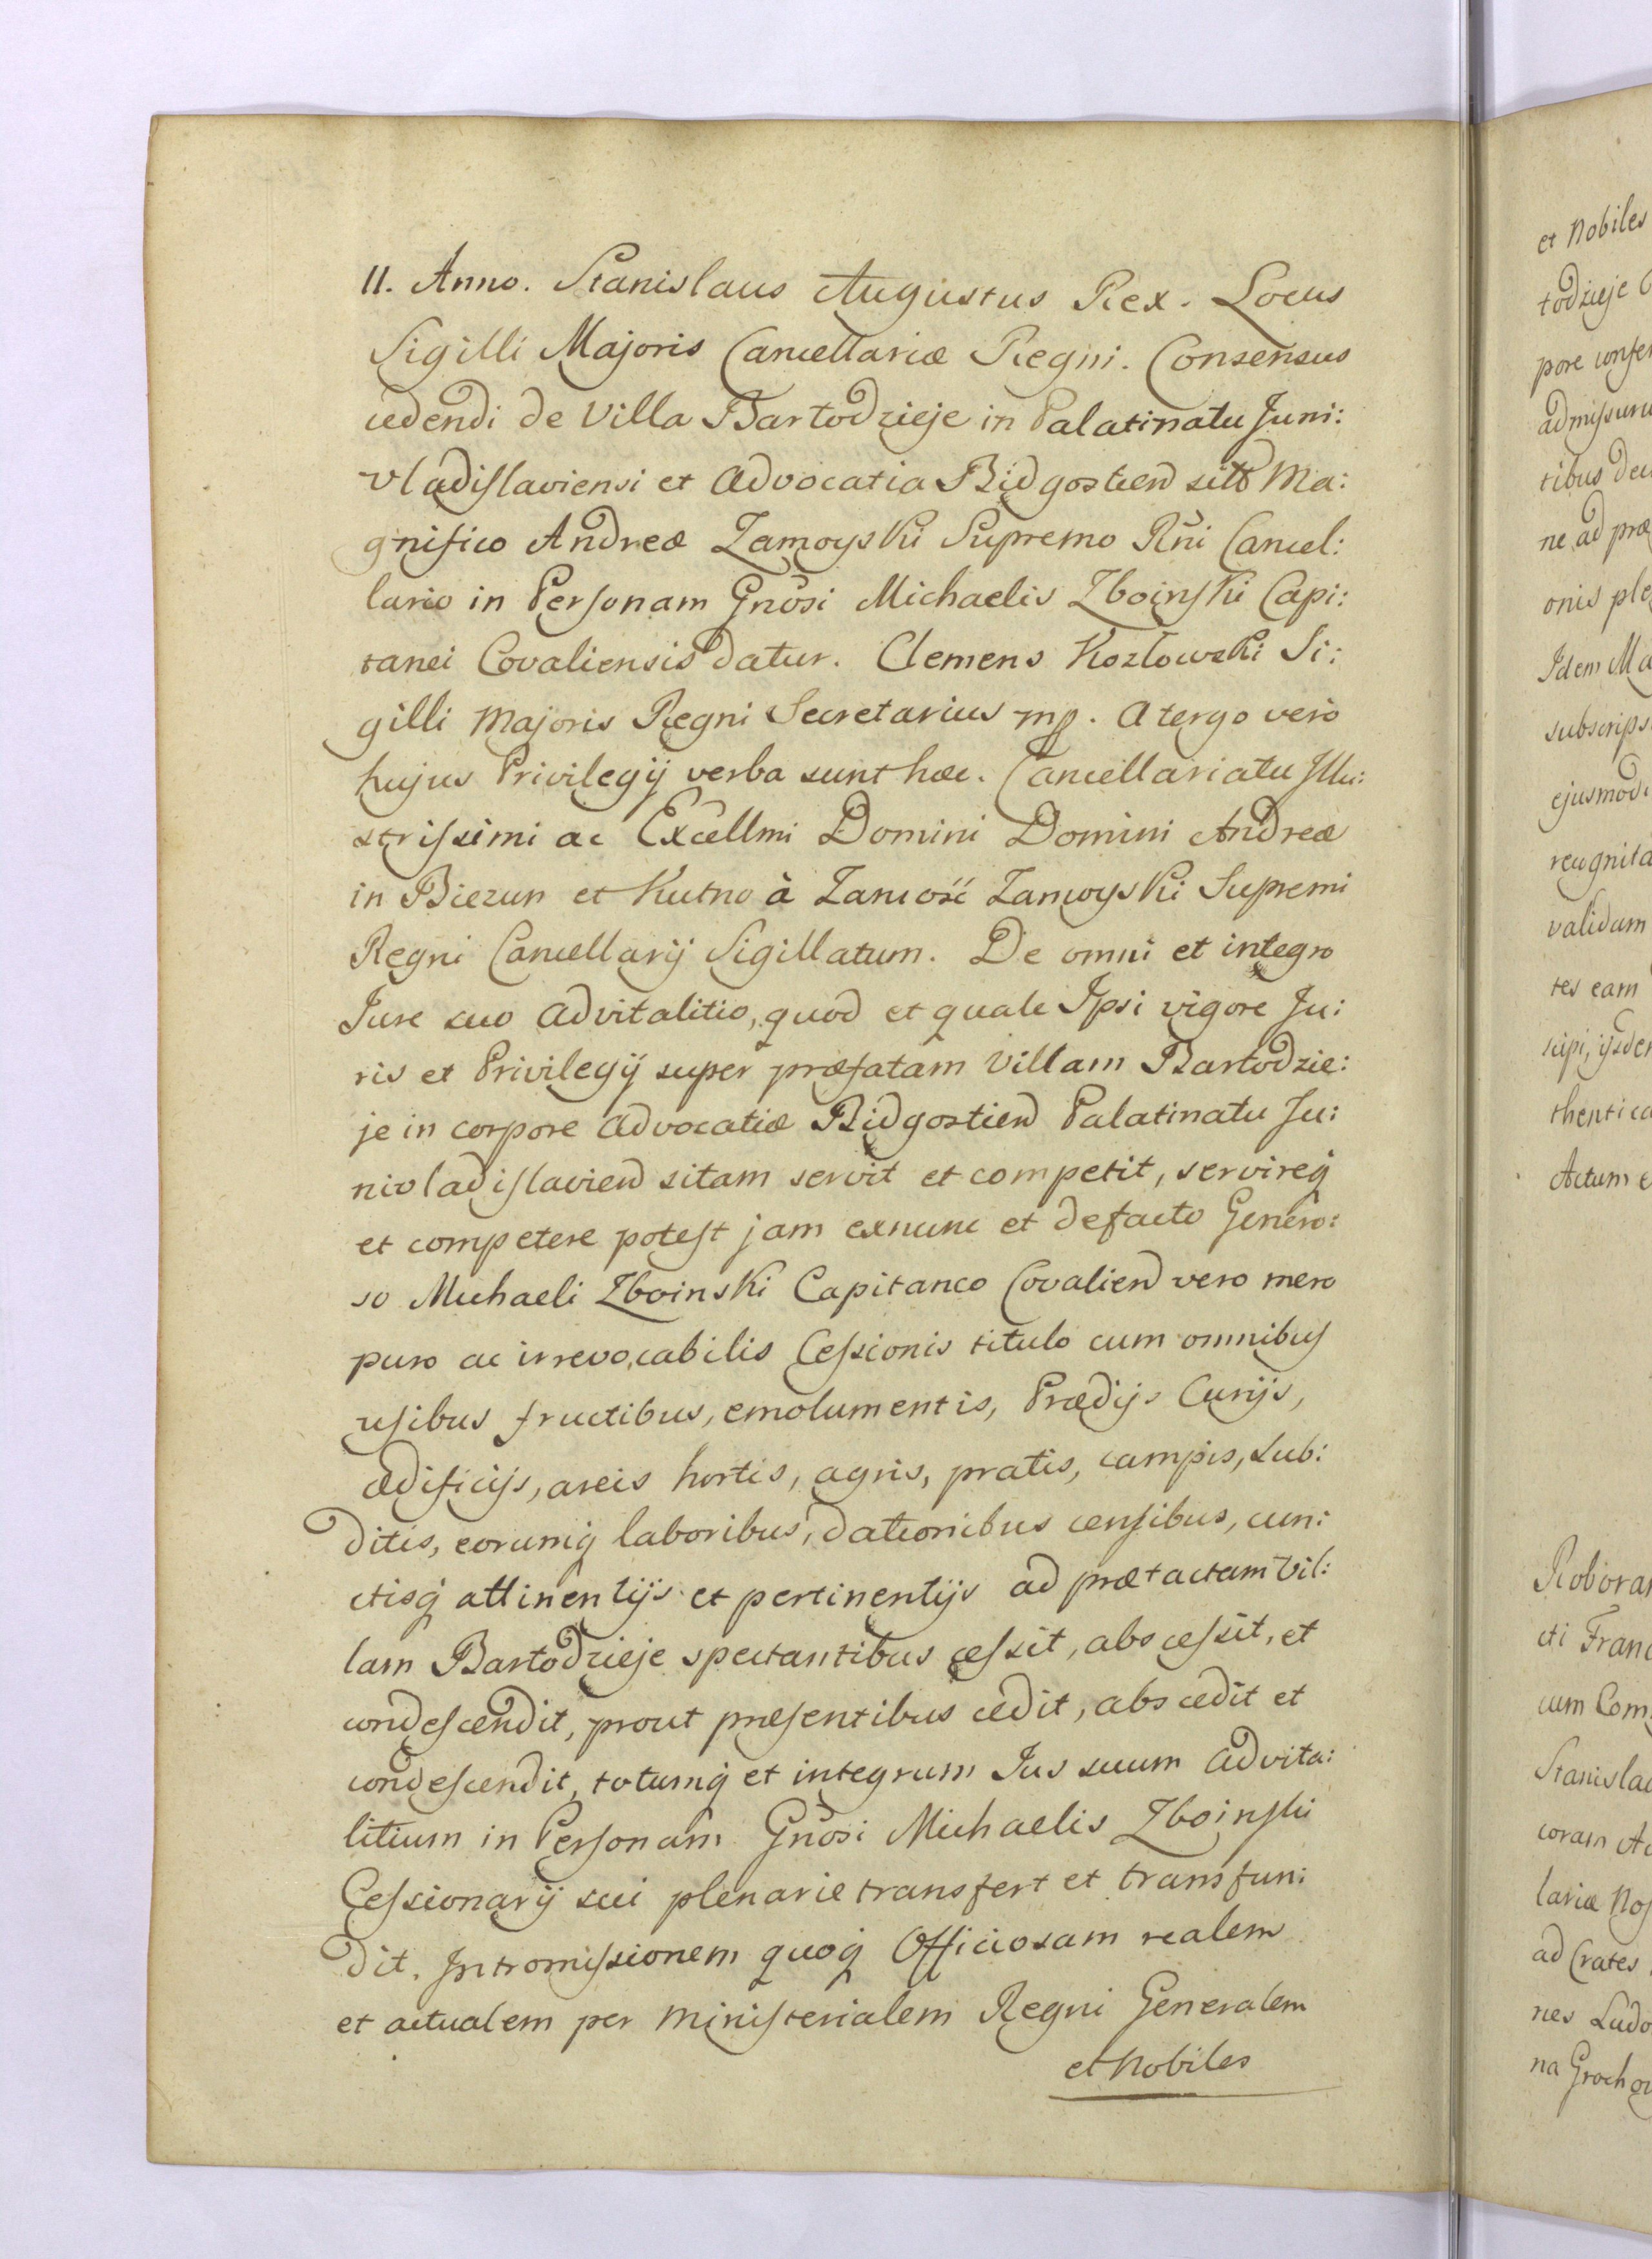 II. Anno. Stanislaus Augustus Rex. Locus
Sigilli Majoris Cancellariæ Regni. Consensus
cedendi de Villa Bartodzieje in Palatinatu Juni:
vladislaviensi et Advocatia Bidgostien sitâ Ma:
gnifico Andreæ Zamoyski Supremo Rñi Cancel:
lario in Personam Gñosi Michaelis Zboinski Capi:
tanei Covaliensis datur. Clemens Kozłowski Si:
gilli Majoris Regni Secretarius mp. A tergo verò
hujus Privilegij verba sunt hæc. Cancellariatu Illu:
strissimi ac Excellmi Domini Domini Andreæ
in Biezun et Kutno à Zamość Zamoyski Supremi
Regni Cancellarij Sigillatum. De omni et integro
Iure suo Advitalitio, quod et quale Ipsi vigore Ju:
ris et Privilegij super præfatam Villam Bartodzie:
je in corpore Advocatiæ Bidgostien Palatinatu Ju:
nivladislavien sitam servit et competit, servireq
et competere potest jam exnunc et defacto Genero:
so Michaeli Zboinski Capitaneo Covalien vero mero
puro ac irrevocabilis Cessionis titulo cum omnibus
usibus fructibus, emolumentis, Prædijs Curijs,
ædificijs, areis hortis, agris, pratis, campis, Sub:
ditis, eorumq laboribus, dationibus censibus, cun:
ctisq attinentijs et pertinentijs ad prætactam Vil:
lam Bartodzieje spectantibus cessit, abscessit, et
condescendit, prout præsentibus cedit, abscedit et
condescendit, totumq et integrum Jus suum Advita:
litium in Personam Gñosi Michaelis Zboinski
Cessionarij sui plenarie transfert et transfun:
dit. Intromissionem quoq Officiosam realem
et actualem per Ministerialem Regni Generalem
et Nobiles
et Nobiles
todzieje
pore
admissuru
tibus
ne ad præ
onis
Idem
subscrips
ejusmodi
recognita
validam
tes eam
thentica
Actum
Roborar
cti Franc
cum Com
Stanislau
coram
lariæ
ad Crates
nes Ludo
na